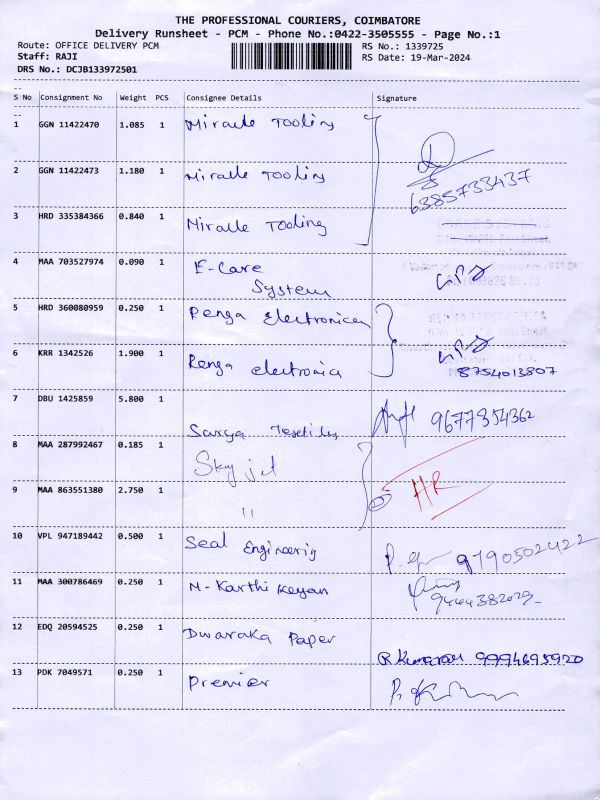 THE PROFESSIONAL COURIERS, COIMBATORE
Delivery Runsheet - PCM - Phone No.:0422-3505555 - Page No.:1
Route: OFFICE DELIVERY PCM RS No.: 1339725
Staff: RAJI RS Date: 19-Mar-2024
DRS No.: DCJB133972501
S No Consignment No Weight PCS Consignee Details Signature
1 GGN 11422470 1.085 1 Miracle Tooling
2 GGN 11422473 1.180 1 Miracle Tooling
6385733437
3 HRD 335384366 0.840 1 Miracle Tooling
4 MAA 703527974 0.090 1 E-Care
System
5 HRD 360080959 0.250 1 Renga Electronica
6 KRR 1342526 1.900 1 Renga electronica
8754013807
7 DBU 1425859 5.800 1
Sarya Textiles 9677354362
8 MAA 287992467 0.185 1 Sky jet
9 MAA 863551380 2.750 1 " HR
10 VPL 947189442 0.500 1 Seal Engineerig 9790502422
11 MAA 300786469 0.250 1 M-Karthi Keyan
12 EDQ 20594525 0.250 1 Dwaraka Paper
R Kumaran 9994695920
13 PDK 7049571 0.250 1 Premier